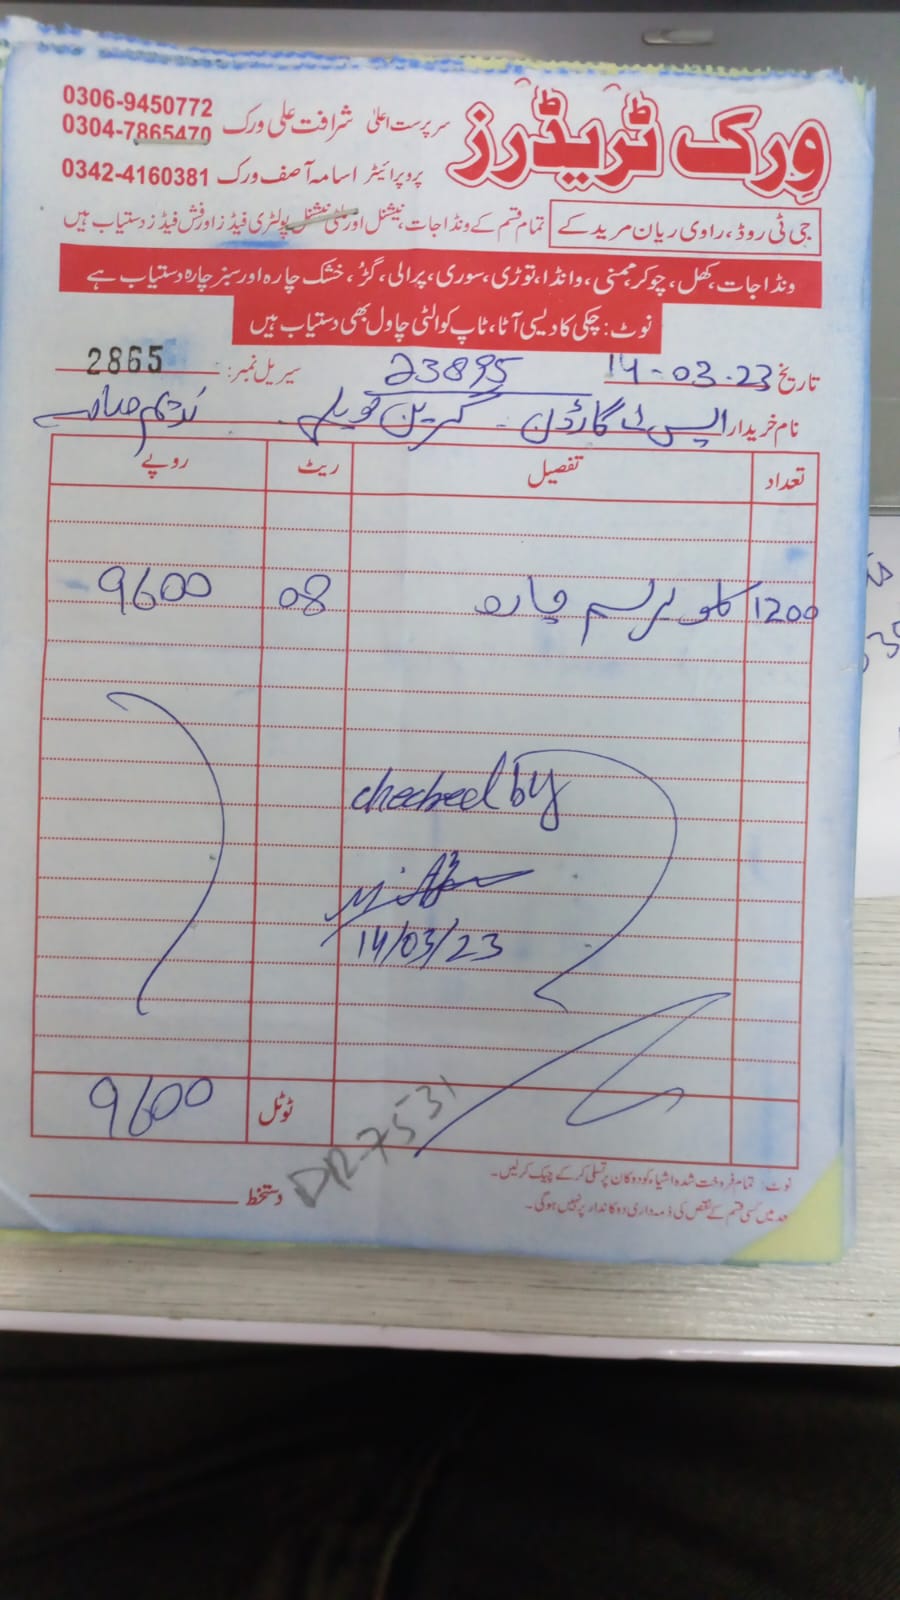 ورک ٹریڈرز
سرپرست اعلیٰ شرافت علی ورک 0306-9450772
0304-7865470
پروپرائیٹر اسامہ آصف ورک 0342-4160381
جی ٹی روڈ، راوی ریان مریدکے
تمام قسم کے ونڈا جات، نیشنل اور ملٹی نیشنل پولٹری فیڈز اور فش فیڈز دستیاب ہیں
ونڈا جات، کھل، چوکر، ممنی، وانڈا، توڑی، سوری، پرالی، گڑ، خشک چارہ اور سبز چارہ دستیاب ہے
نوٹ: چکی کا دیسی آٹا، ٹاپ کوالٹی چاول بھی دستیاب ہیں
تاریخ 14-03-23 23895 سیریل نمبر: 2865
نام خریدار ایس ٹی گارڈن - گرین حویلی - ندیم صاحب
تعداد تفصیل ریٹ روپے
1200 کلو برسیم چارہ 08 9600
checked by
14/03/23
ٹوٹل 9600
DR-7531
نوٹ: تمام فروخت شدہ اشیاء کو دوکان پر تسلی کر کے چیک کر لیں۔
بعد میں کسی قسم کے نقص کی ذمہ داری دوکاندار پر نہیں ہوگی۔
دستخط